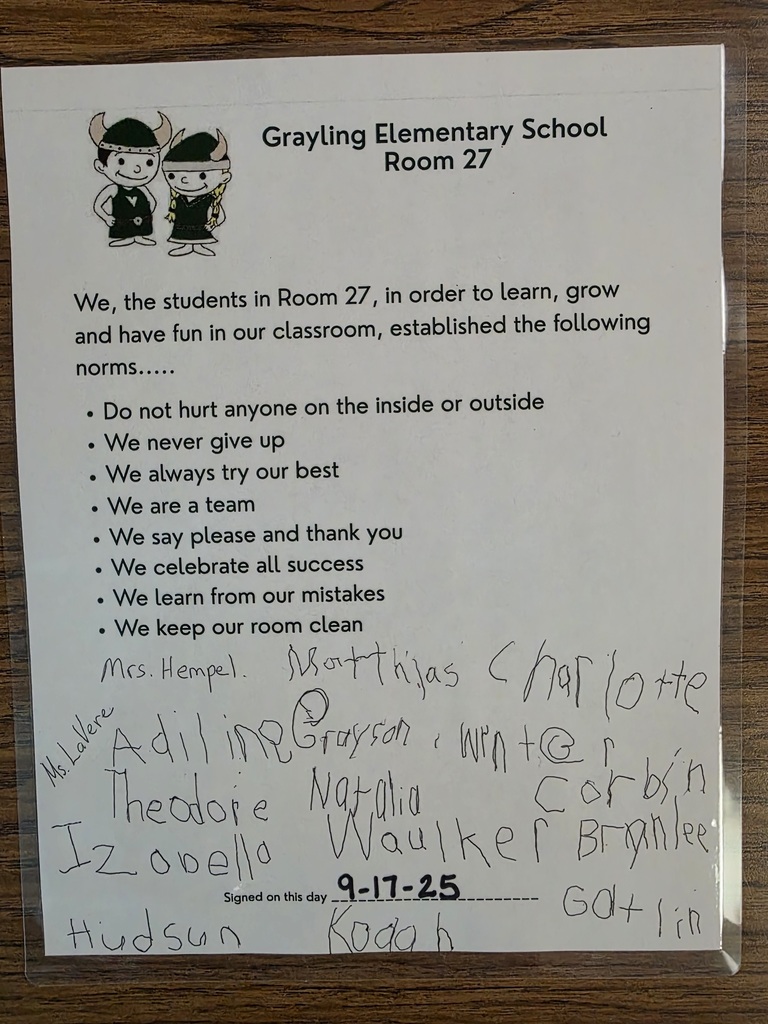 Grayling Elementary School
Room 27
We, the students in Room 27, in order to learn, grow
and have fun in our classroom, established the following
norms.....
• Do not hurt anyone on the inside or outside
• We never give up
• We always try our best
• We are a team
• We say please and thank you
• We celebrate all success
• We learn from our mistakes
• We keep our room clean
Mrs. Hempel. Matthijas Charlotte
Ms. LaVere Adiline Grayson Winter
Theodore Natalia Corbin
Izabella Waulker Brynlee
Signed on this day 9-17-25 Gatlin
Hudsun Kodah